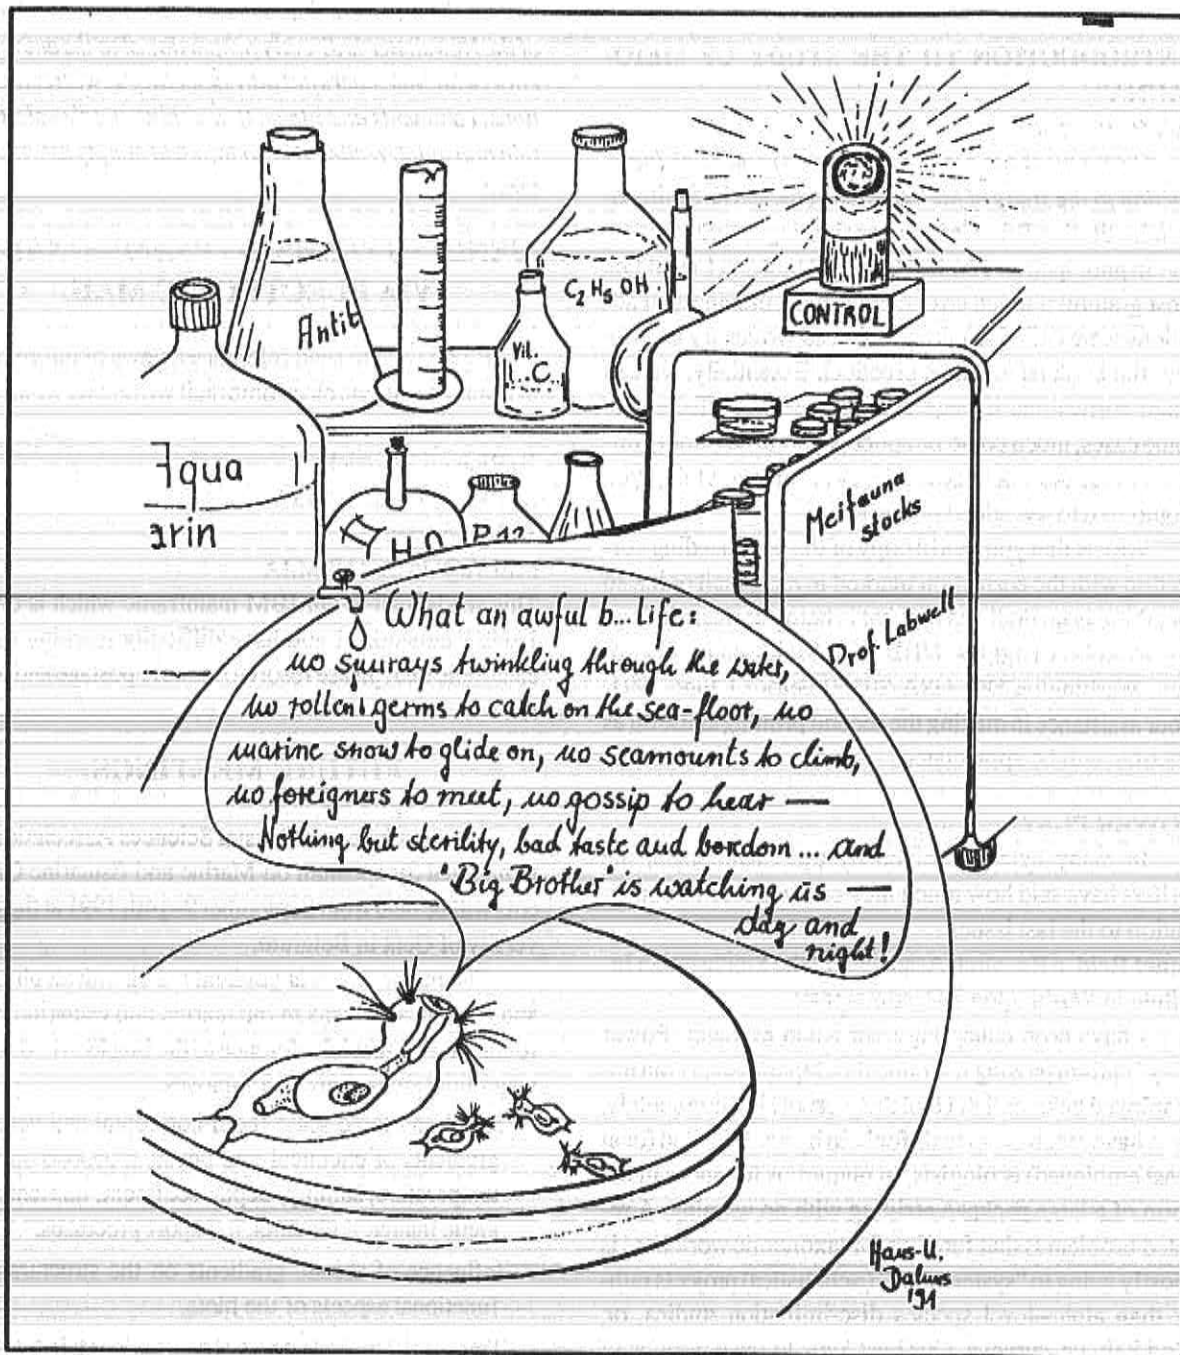 Antib
C₂H₅OH
CONTROL
Vit.
C
Aqua
arin
H₂O
B 12
Meifauna
stocks
Prof. Labwell
What an awful b... life:
no sunrays twinkling through the water,
no rotten germs to catch on the sea-floor, no
marine snow to glide on, no seamounts to climb,
no foreigners to meet, no gossip to hear —
Nothing but sterility, bad taste and boredom ... and
'Big Brother' is watching us —
day and
night!
Hans-U.
Dahms
'91